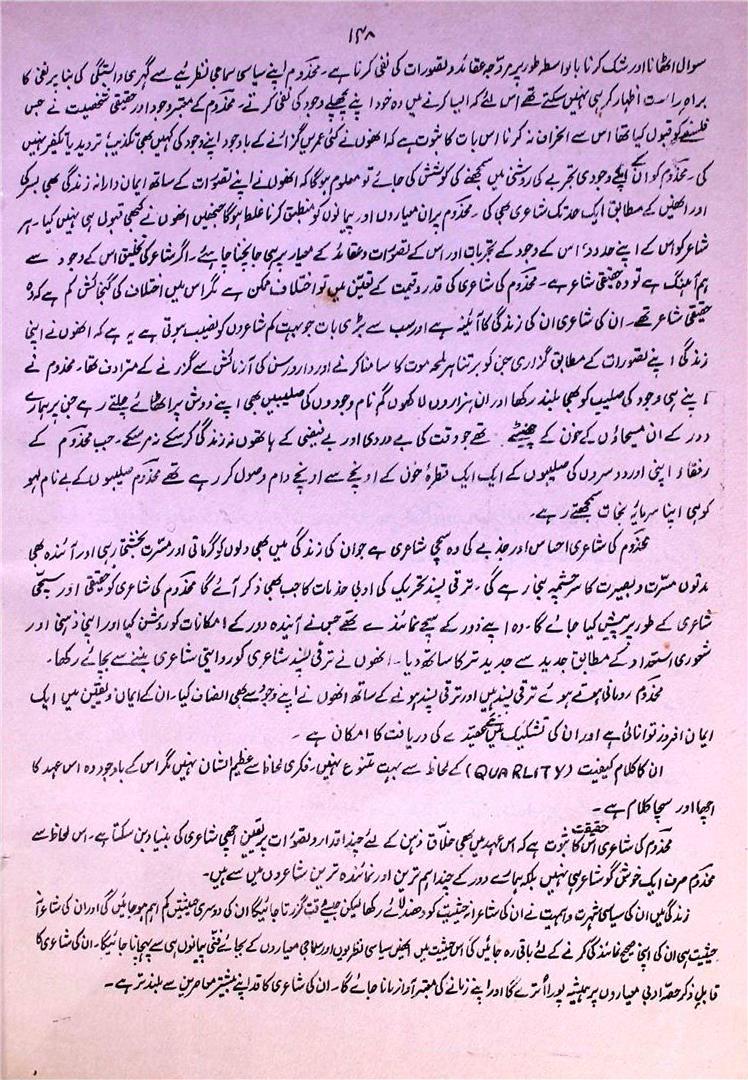 ۱۴۸
سوال اٹھانا اور شک کرنا بالواسطہ طور پر مروّجہ عقائد و تصورات کی نفی کرنا ہے۔ مخدوم اپنے سیاسی سماجی نظریے سے گہری وابستگی کی بنا پر نفی کا
براہ راست اظہار کر ہی نہیں سکتے تھے اس لئے کہ ایسا کرنے میں وہ خود اپنے پچھلے وجود کی نفی کرتے۔ مخدوم کے معتبر وجود اور حقیقی شخصیت نے جس
فلسفے کو قبول کیا تھا اس سے انحراف نہ کرنا اس بات کا ثبوت ہے کہ انھوں نے کئی عمریں گزارنے کے باوجود اپنے وجود کی کہیں بھی تکذیب، تردید یا تکفیر نہیں
کی۔ مخدوم کو ان کے اپنے وجودی تجربے کی روشنی میں سمجھنے کی کوشش کی جائے تو معلوم ہوگا کہ انھوں نے اپنے تصورات کے ساتھ ایمان دارانہ زندگی بھی بسر کی
اور انھیں کے مطابق ایک حد تک شاعری بھی کی۔ مخدوم پر ان معیاروں اور پیمانوں کو منطبق کرنا غلط ہوگا جنھیں انھوں نے کبھی قبول ہی نہیں کیا۔ ہر
شاعر کو اس کے اپنے حدود، اس کے وجود کے تجربات اور اس کے تصورات و عقائد کے معیار پر ہی جانچنا چاہئے۔ اگر شاعر کی تخلیق اس کے وجود سے
ہم آہنگ ہے تو وہ حقیقی شاعر ہے۔ مخدوم کی شاعری کی قدر و قیمت کے تعین میں تو اختلاف ممکن ہے مگر اس میں اختلاف کی گنجائش کم ہے کہ وہ
حقیقی شاعر تھے۔ ان کی شاعری ان کی زندگی کا آئینہ ہے اور سب سے بڑی بات جو بہت کم شاعروں کو نصیب ہوتی ہے یہ ہے کہ انھوں نے اپنی
زندگی اپنے تصورات کے مطابق گزاری جن کو برتنا ہر لمحہ موت کا سامنا کرنے اور دار و رسن کی آزمائش سے گزرنے کے مترادف تھا۔ مخدوم نے
اپنے ہی وجود کی صلیب کو بھی بلند رکھا اور ان ہزاروں لاکھوں گم نام وجودوں کی صلیبیں بھی اپنے دوش پر اٹھائے چلتے رہے جن پر ہمارے
دور کے ان مسیحاؤں کے خون کے چھینٹے تھے جو وقت کی بے دردی اور بے فیضی کے ہاتھوں نہ زندگی کر سکے نہ مر سکے۔ جب مخدوم کے
رفقاء اپنی اور دوسروں کی صلیبوں کے ایک ایک قطرۂ خون کے اونچے سے اونچے دام وصول کر رہے تھے مخدوم صلیبوں کے بے نام لہو
کو ہی اپنا سرمایۂ نجات سمجھتے رہے۔
مخدوم کی شاعری احساس اور جذبے کی وہ سچی شاعری ہے جو ان کی زندگی میں بھی دلوں کو گرماتی اور مسرت بخشتی رہی اور آئندہ بھی
مدتوں مسرت و بصیرت کا سرچشمہ بنی رہے گی۔ ترقی پسند تحریک کی ادبی خدمات کا جب بھی ذکر آئے گا مخدوم کی شاعری کو حقیقی اور سچی
شاعری کے طور پر پیش کیا جائے گا۔ وہ اپنے دور کے سچے نمائندے تھے جس نے آئندہ دور کے امکانات کو روشن کیا اور اپنی ذہنی اور
شعوری استعداد کے مطابق جدید سے جدید تر کا ساتھ دیا۔ انھوں نے ترقی پسند شاعری کو روایتی شاعری بننے سے بچائے رکھا۔
مخدوم رومانی ہوتے ہوئے ترقی پسند ہیں اور ترقی پسند ہونے کے ساتھ انھوں نے اپنے وجود سے بھی انصاف کیا۔ ان کے ایمان و یقین میں ایک
ایمان افروز توانائی ہے اور ان کی تشکیک میں نئے عقیدے کی دریافت کا امکان ہے۔
ان کا کلام کیفیت (QUARLITY) کے لحاظ سے بہت متنوع نہیں۔ فکری لحاظ سے عظیم الشان نہیں مگر اس کے باوجود وہ اس عہد کا
اچھا اور سچا کلام ہے۔
مخدوم کی شاعری اس حقیقت کا ثبوت ہے کہ اس عہد میں بھی خلاّق ذہن کے لئے چند اقدار و تصورات پر یقین اچھی شاعری کی بنیاد بن سکتا ہے۔ اس لحاظ سے
مخدوم صرف ایک خوش گو شاعر ہی نہیں بلکہ ہمارے دور کے چند اہم ترین اور نمائندہ ترین شاعروں میں سے ہیں۔
زندگی میں ان کی سیاسی شہرت و اہمیت نے ان کی شاعرانہ حیثیت کو دھندلائے رکھا لیکن جیسے وقت گزرتا جائیگا ان کی دوسری حیثیتیں کم اہم ہو جائیں گی اور ان کی شاعرانہ
حیثیت ہی ان کی اپنی صحیح نمائندگی کرنے کے لئے باقی رہ جائیں گی اس حیثیت میں انھیں سیاسی نظریوں اور سماجی معیاروں کے بجائے فنّی پیمانوں ہی سے پہچانا جائیگا۔ ان کی شاعری کا
قابلِ ذکر حصّہ ادبی معیاروں پر ہمیشہ پورا اُترے گا اور اپنے زمانے کی معتبر آواز مانا جائے گا۔ ان کی شاعری کا قد اپنے بیشتر معاصرین سے بلند تر ہے۔